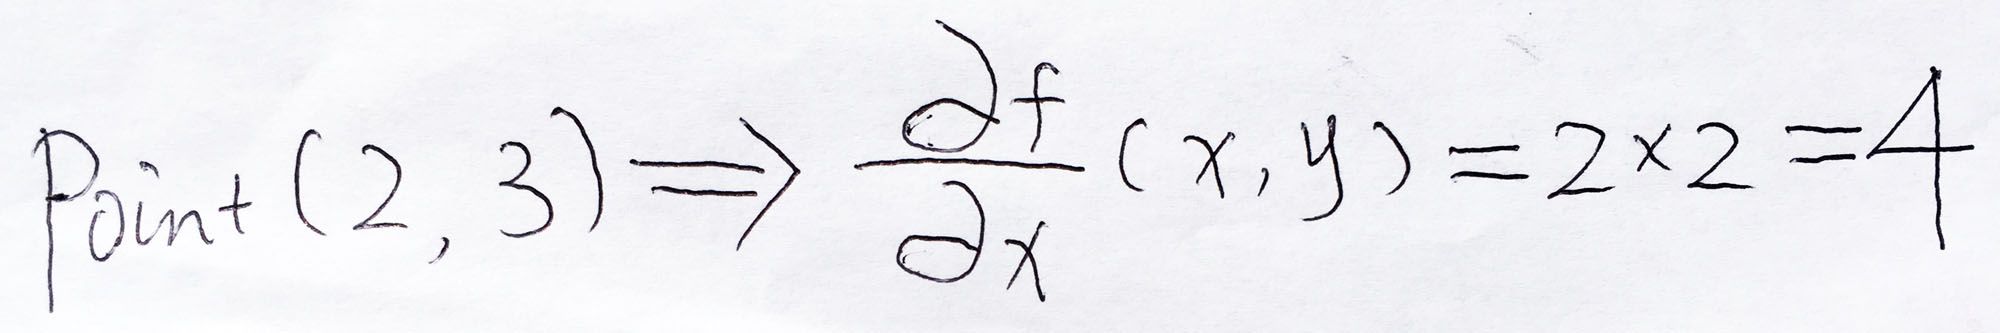 Point (2, 3) ⟹ ∂f/∂x (x, y) = 2 × 2 = 4